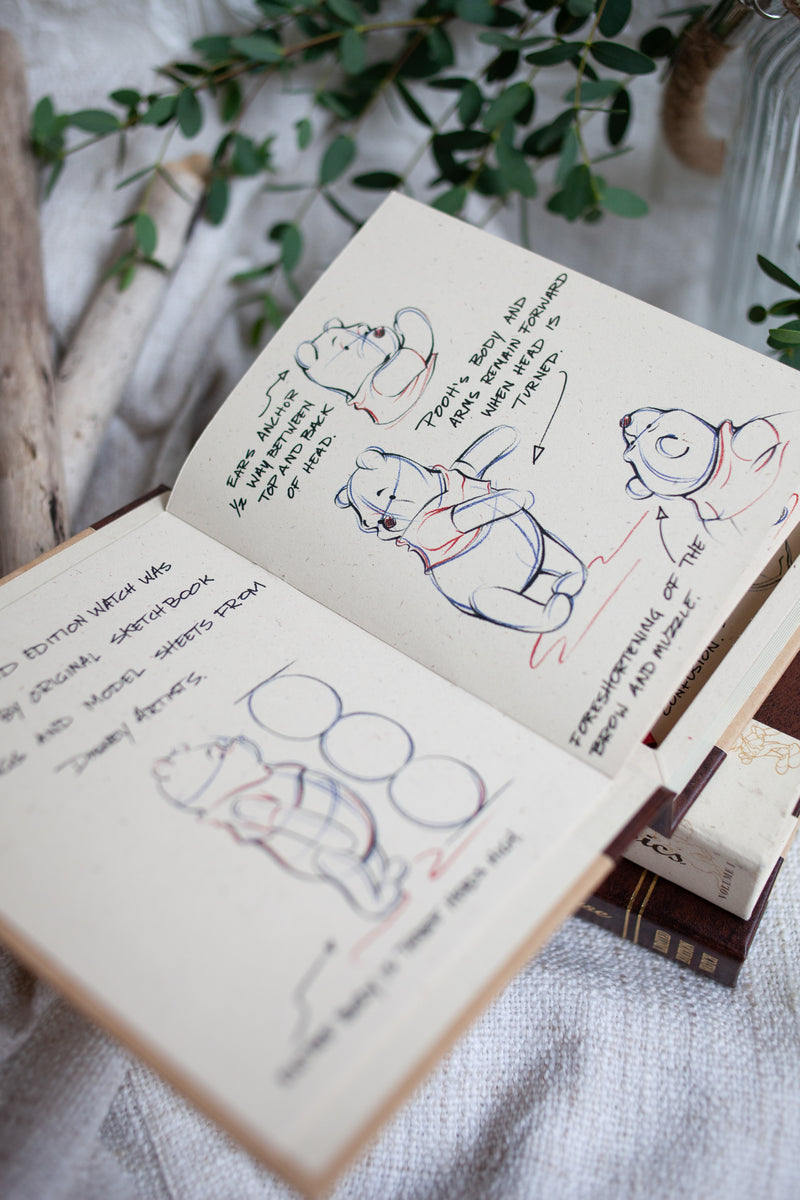 EARS ANCHOR
1/2 WAY BETWEEN
TOP AND BACK
OF HEAD.
POOH'S BODY AND
ARMS REMAIN FORWARD
WHEN HEAD IS
TURNED.
FORESHORTENING OF THE
BROW AND MUZZLE.
CONFUSION.
EDITION WATCH WAS
BY ORIGINAL SKETCHBOOK
AND MODEL SHEETS FROM
DISNEY ARTISTS.
BODY IS THREE HEADS HIGH
VOLUME 1